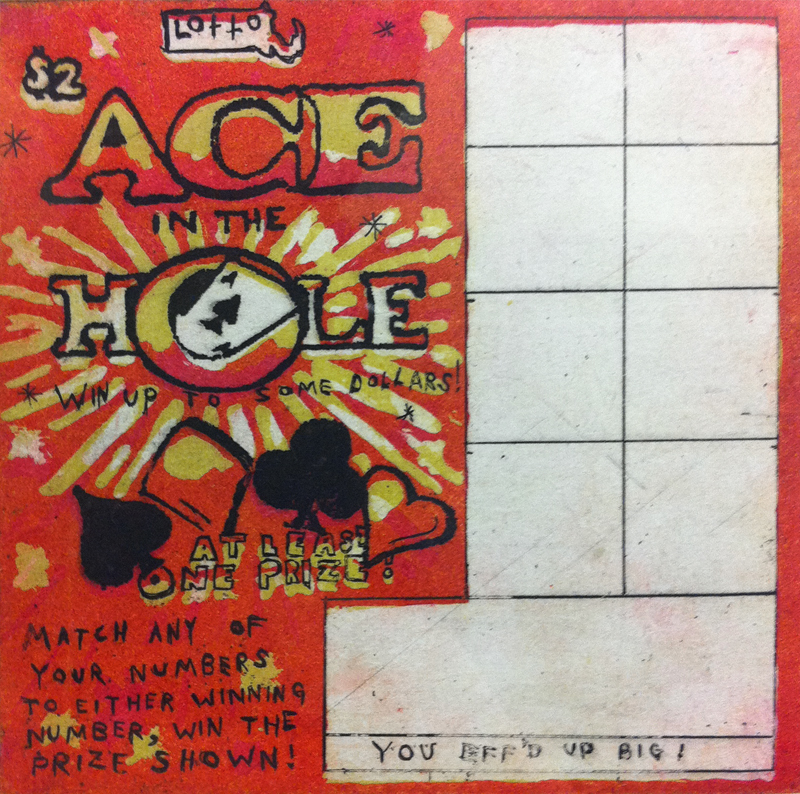 LOTTO
$2
ACE
IN THE
HOLE
WIN UP TO SOME DOLLARS!
AT LEASE
ONE PRIZE!
MATCH ANY OF
YOUR NUMBERS
TO EITHER WINNING
NUMBER, WIN THE
PRIZE SHOWN!
YOU EFF'D UP BIG!